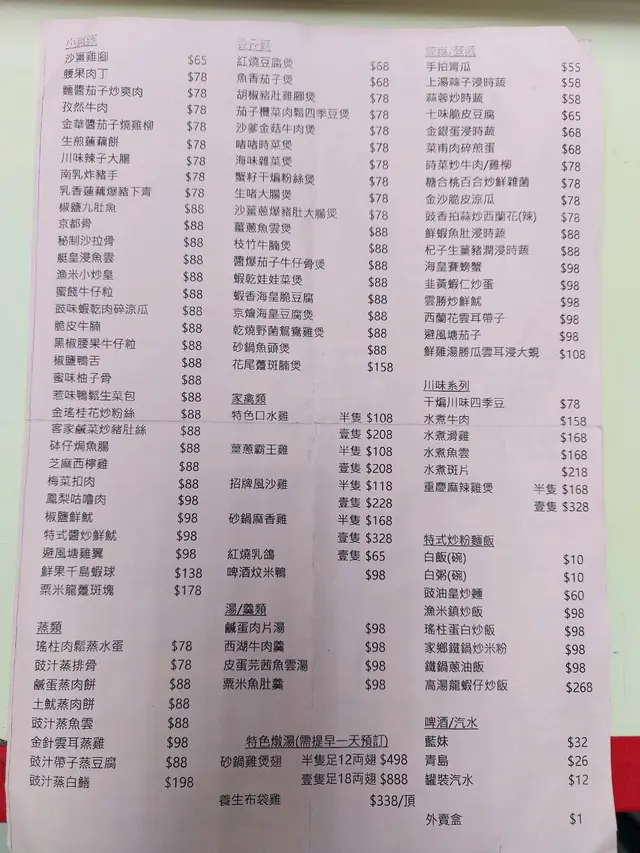 小炒類
沙薑雞腳 $65
腰果肉丁 $78
麵醬茄子炒爽肉 $78
孜然牛肉 $78
金華醬茄子燒雞柳 $78
生煎蓮藕餅 $78
川味辣子大腸 $78
南乳炸豬手 $78
乳香蓮藕爆豬下青 $78
椒鹽九肚魚 $88
京都骨 $88
秘制沙拉骨 $88
艇皇浸魚雲 $88
漁米小炒皇 $88
蜜餞牛仔粒 $88
豉味蝦乾肉碎涼瓜 $88
脆皮牛腩 $88
黑椒腰果牛仔粒 $88
椒鹽鴨舌 $88
蜜味柚子骨 $88
惹味鴨鬆生菜包 $88
金瑤桂花炒粉絲 $88
客家鹹菜炒豬肚絲 $88
砵仔焗魚腸 $88
芝麻西檸雞 $88
梅菜扣肉 $88
鳳梨咕嚕肉 $98
椒鹽鮮魷 $98
特式醬炒鮮魷 $98
避風塘雞翼 $98
鮮果千島蝦球 $138
粟米龍躉斑塊 $178
蒸類
瑤柱肉鬆蒸水蛋 $78
豉汁蒸排骨 $78
鹹蛋蒸肉餅 $88
土魷蒸肉餅 $88
豉汁蒸魚雲 $88
金針雲耳蒸雞 $98
豉汁帶子蒸豆腐 $88
豉汁蒸白鱔 $198
紅燒豆腐煲 $68
魚香茄子煲 $68
胡椒豬肚雞腳煲 $78
茄子欖菜肉鬆四季豆煲 $78
沙爹金菇牛肉煲 $78
啫啫時菜煲 $78
海味雜菜煲 $78
蟹籽干煸粉絲煲 $78
生啫大腸煲 $78
沙薑蔥爆豬肚大腸煲 $78
薑蔥魚雲煲 $88
枝竹牛腩煲 $88
醬爆茄子牛仔骨煲 $88
蝦乾娃娃菜煲 $88
蝦香海皇脆豆腐 $88
京燴海皇豆腐煲 $88
乾燒野菌鴛鴦雞煲 $88
砂鍋魚頭煲 $88
花尾躉斑腩煲 $158
家禽類
特色口水雞 半隻 $108
壹隻 $208
薑蔥霸王雞 半隻 $108
壹隻 $208
招牌風沙雞 半隻 $118
壹隻 $228
砂鍋麻香雞 半隻 $168
壹隻 $328
紅燒乳鴿 壹隻 $65
啤酒炆米鴨 $98
湯/羹類
鹹蛋肉片湯 $98
西湖牛肉羹 $98
皮蛋芫茜魚雲湯 $98
粟米魚肚羹 $98
特色燉湯(需提早一天預訂)
砂鍋雞煲翅 半隻足12両翅 $498
壹隻足18両翅 $888
養生布袋雞 $338/頂
手拍青瓜 $55
上湯蒜子浸時蔬 $58
蒜蓉炒時蔬 $58
七味脆皮豆腐 $65
金銀蛋浸時蔬 $68
菜甫肉碎煎蛋 $68
時菜炒牛肉/雞柳 $78
糖合桃百合炒鮮雜菌 $78
金沙脆皮涼瓜 $78
豉香拍蒜炒西蘭花(辣) $78
鮮蝦魚肚浸時蔬 $88
杞子生薑豬潤浸時蔬 $88
海皇賽螃蟹 $98
韭黃蝦仁炒蛋 $98
雲勝炒鮮魷 $98
西蘭花雲耳帶子 $98
避風塘茄子 $98
鮮雞湯勝瓜雲耳浸大蜆 $108
川味系列
干煸川味四季豆 $78
水煮牛肉 $158
水煮滑雞 $168
水煮魚雲 $168
水煮斑片 $218
重慶麻辣雞煲 半隻 $168
壹隻 $328
特式炒粉麵飯
白飯(碗) $10
白粥(碗) $10
豉油皇炒麵 $60
漁米鎮炒飯 $98
瑤柱蛋白炒飯 $98
家鄉鐵鍋炒米粉 $98
鐵鍋蔥油飯 $98
高湯龍蝦仔炒飯 $268
啤酒/汽水
藍妹 $32
青島 $26
罐裝汽水 $12
外賣盒 $1